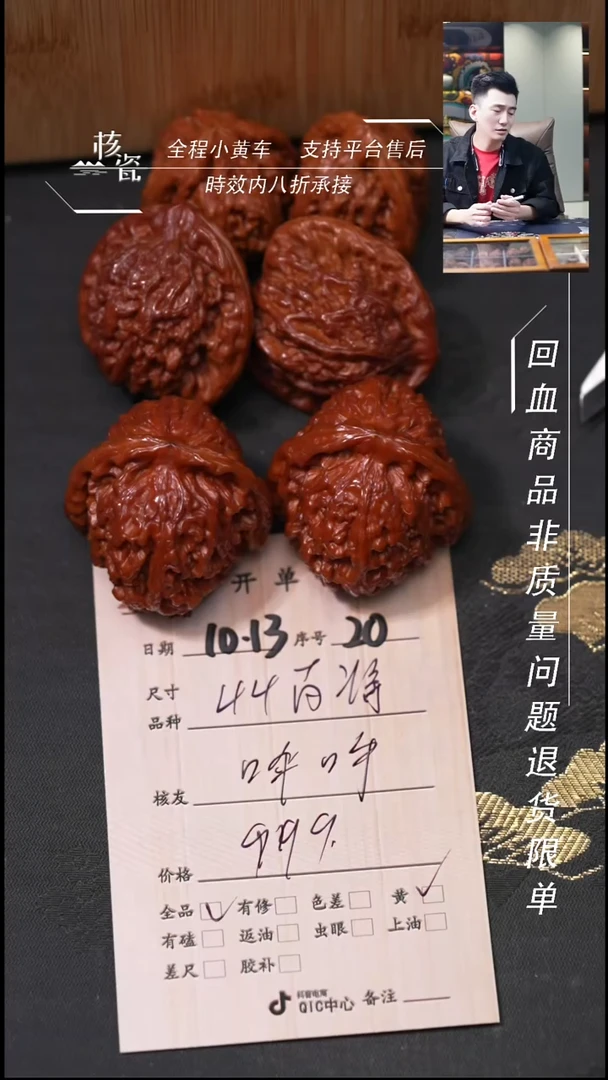 核瓷
全程小黄车 支持平台售后
時效内八折承接
回血商品非质量问题退货限单
开单
日期 10.13 序号 20
尺寸
品种 44南将
核友 咔咔
价格 999.
全品 有修 色差 黄
有磕 返油 虫眼 上油
差尺 胶补
抖音电商
QIC中心 备注